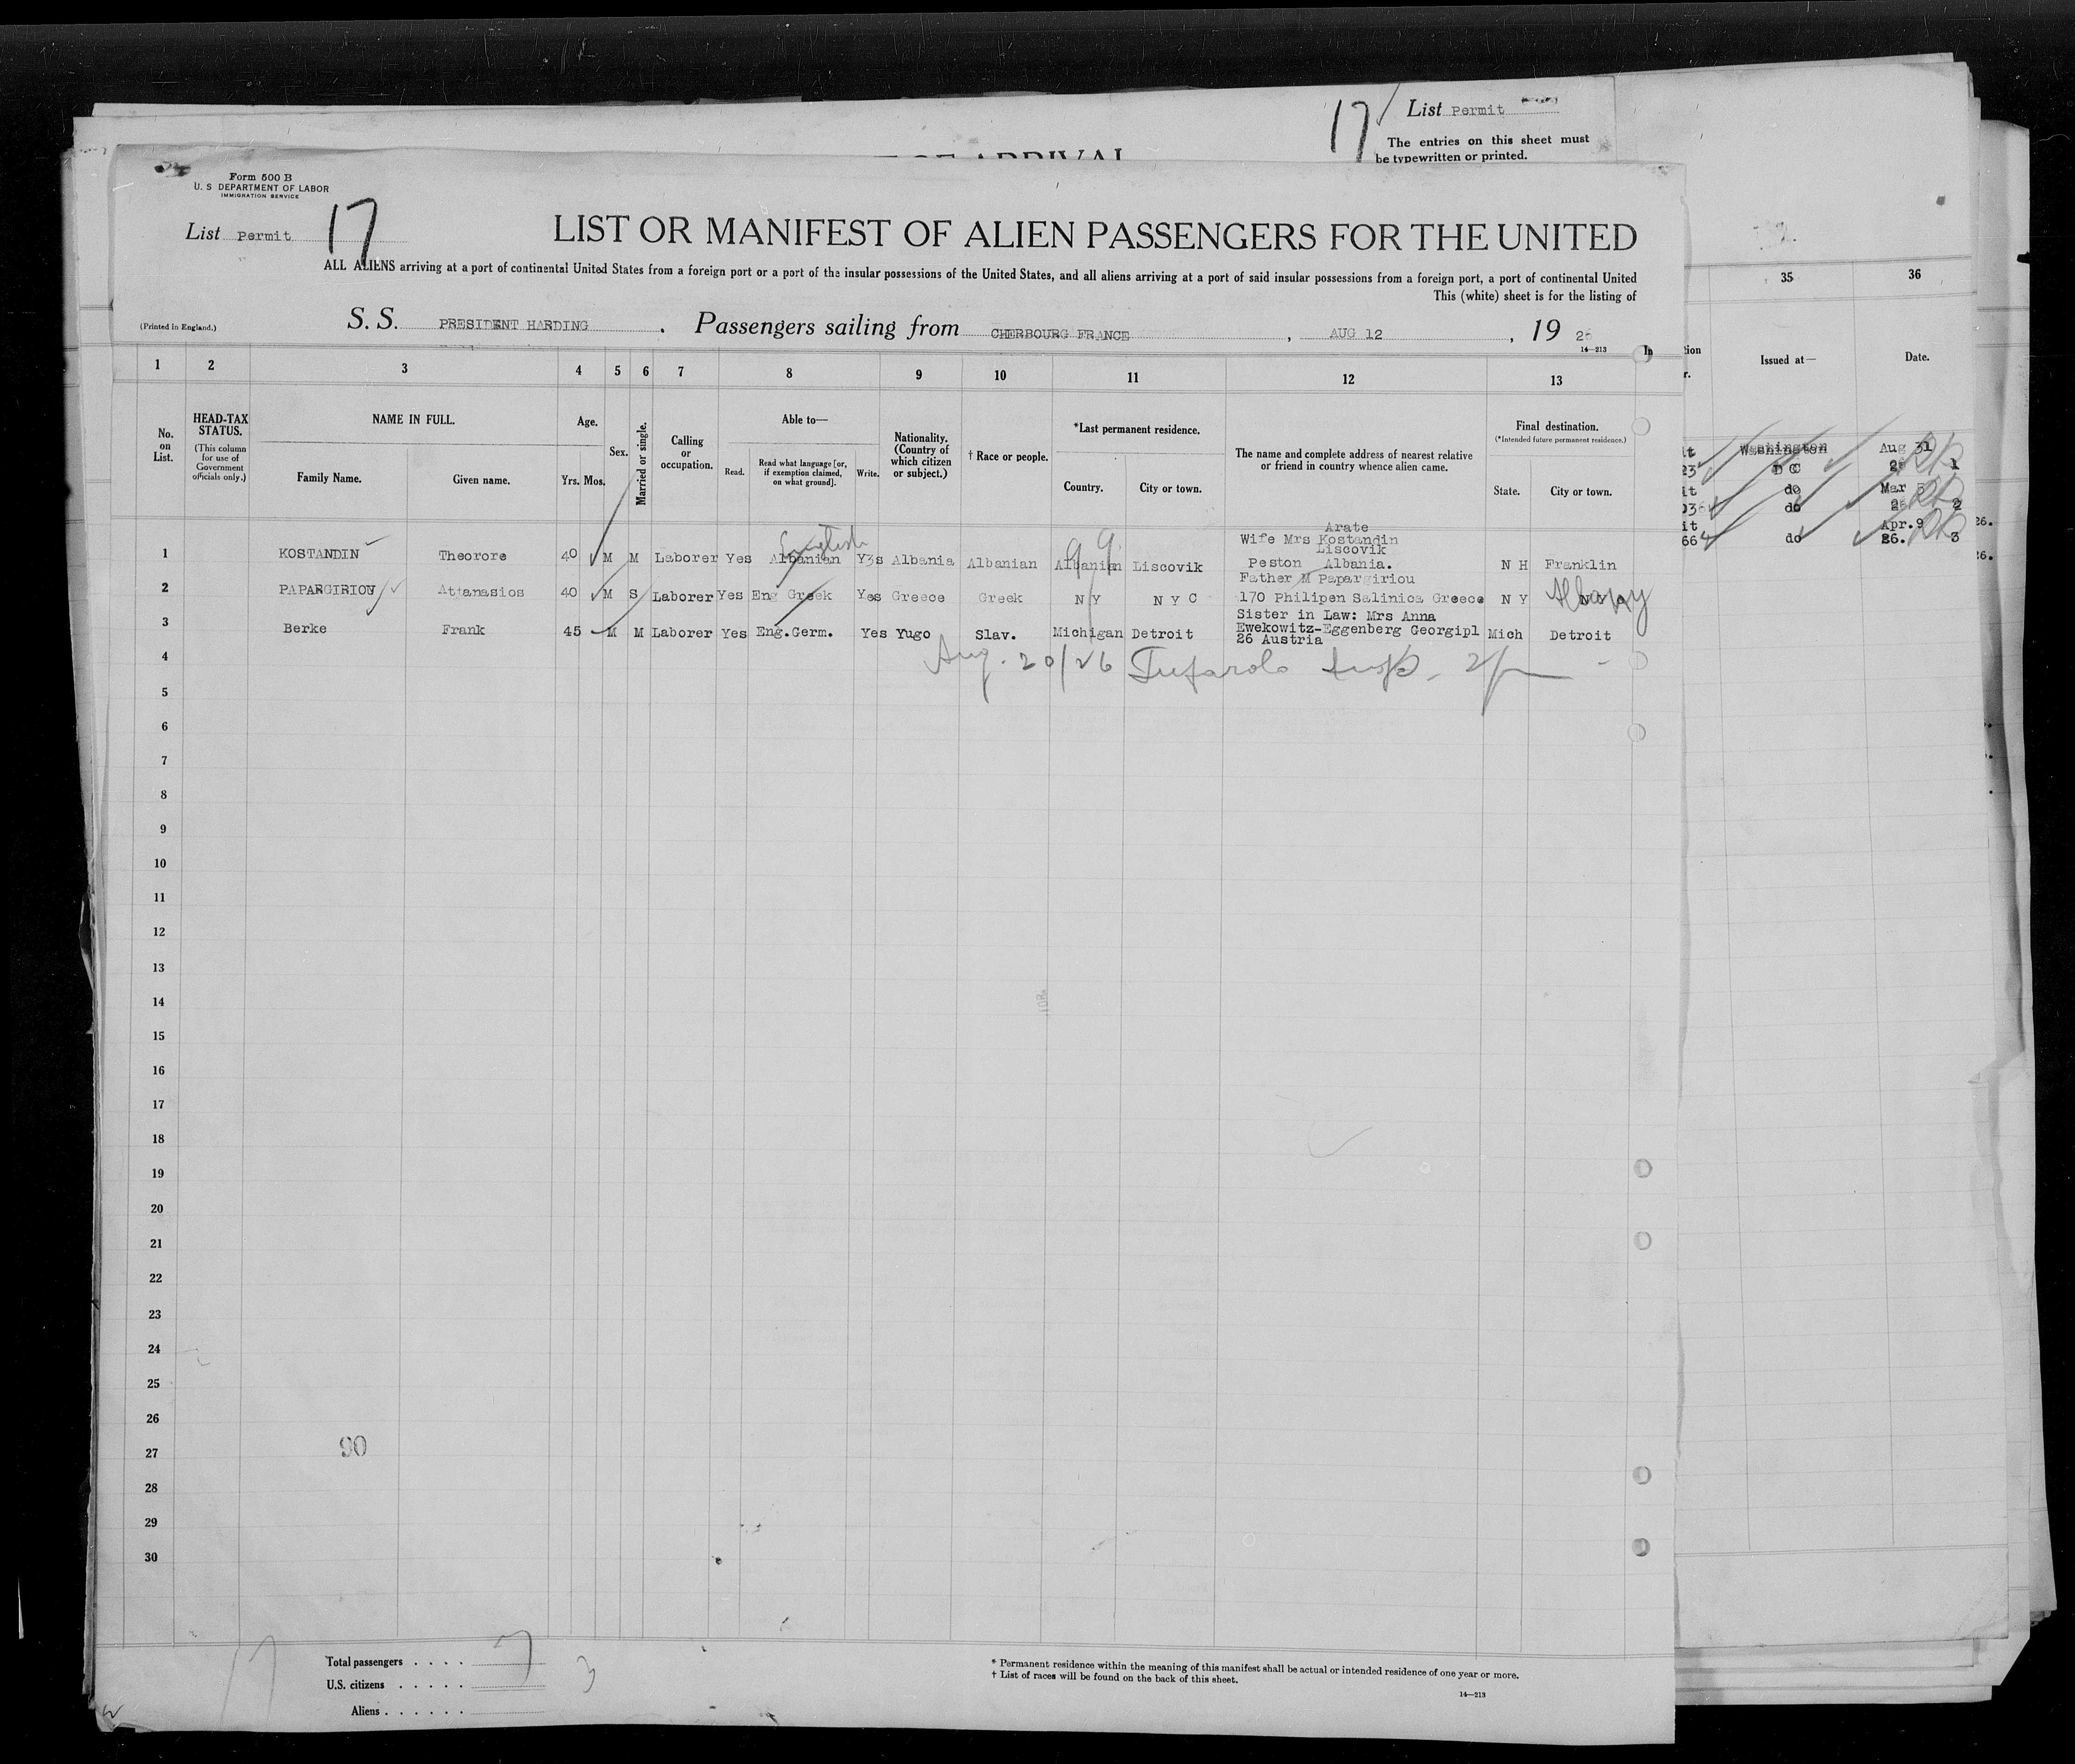 17
List Permit
The entries on this sheet must
be typewritten or printed.
Form 500 B
U. S DEPARTMENT OF LABOR
IMMIGRATION SERVICE
List Permit 17
LIST OR MANIFEST OF ALIEN PASSENGERS FOR THE UNITED
ALL ALIENS arriving at a port of continental United States from a foreign port or a port of the insular possessions of the United States, and all aliens arriving at a port of said insular possessions from a foreign port, a port of continental United
This (white) sheet is for the listing of
(Printed in England.) S. S. PRESIDENT HARDING . Passengers sailing from CHERBOURG FRANCE , AUG 12 , 19 26
14—213
1 2 3 4 5 6 7 8 9 10 11 12 13
No. on List.
HEAD-TAX STATUS.
(This column for use of Government officials only.)
NAME IN FULL.
Family Name. Given name.
Age.
Yrs. Mos.
Sex.
Married or single.
Calling or occupation.
Able to—
Read. Read what language [or, if exemption claimed, on what ground]. Write.
Nationality. (Country of which citizen or subject.)
† Race or people.
*Last permanent residence.
Country. City or town.
The name and complete address of nearest relative or friend in country whence alien came.
Final destination.
(*Intended future permanent residence.)
State. City or town.
1 KOSTANDIN Theorore 40 M M Laborer Yes Albanian English Y3s Albania Albanian Albanian Liscovik Wife Mrs Kostandin Arate Liscovik Peston Albania. N H Franklin
2 PAPARGIRIOU Attanasios 40 M S Laborer Yes Eng Greek Yes Greece Greek N Y N Y C Father M Papargiriou 170 Philipen Salinica Greece N Y Albany
3 Berke Frank 45 M M Laborer Yes Eng.Germ. Yes Yugo Slav. Michigan Detroit Sister in Law: Mrs Anna Ewekowitz-Eggenberg Georgipl 26 Austria Mich Detroit
4 Aug. 20/26
5
6
7
8
9
10
11
12
13
14
15
16
17
18
19
20
21
22
23
24
25
26
27
28
29
30
90
Total passengers . . . . 3
U.S. citizens . . . . .
Aliens . . . . . .
* Permanent residence within the meaning of this manifest shall be actual or intended residence of one year or more.
† List of races will be found on the back of this sheet.
14—213
35 36
Issued at— Date.
Washington Aug 31
D C 1
do Mar
do 2
Apr.9
do 26. 3
26.
26.